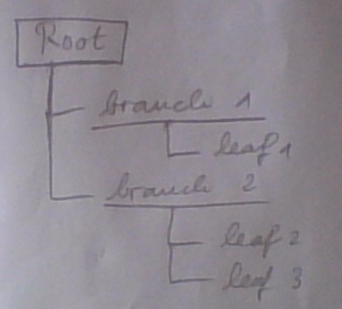 Root
branch 1
leaf 1
branch 2
leaf 2
leaf 3